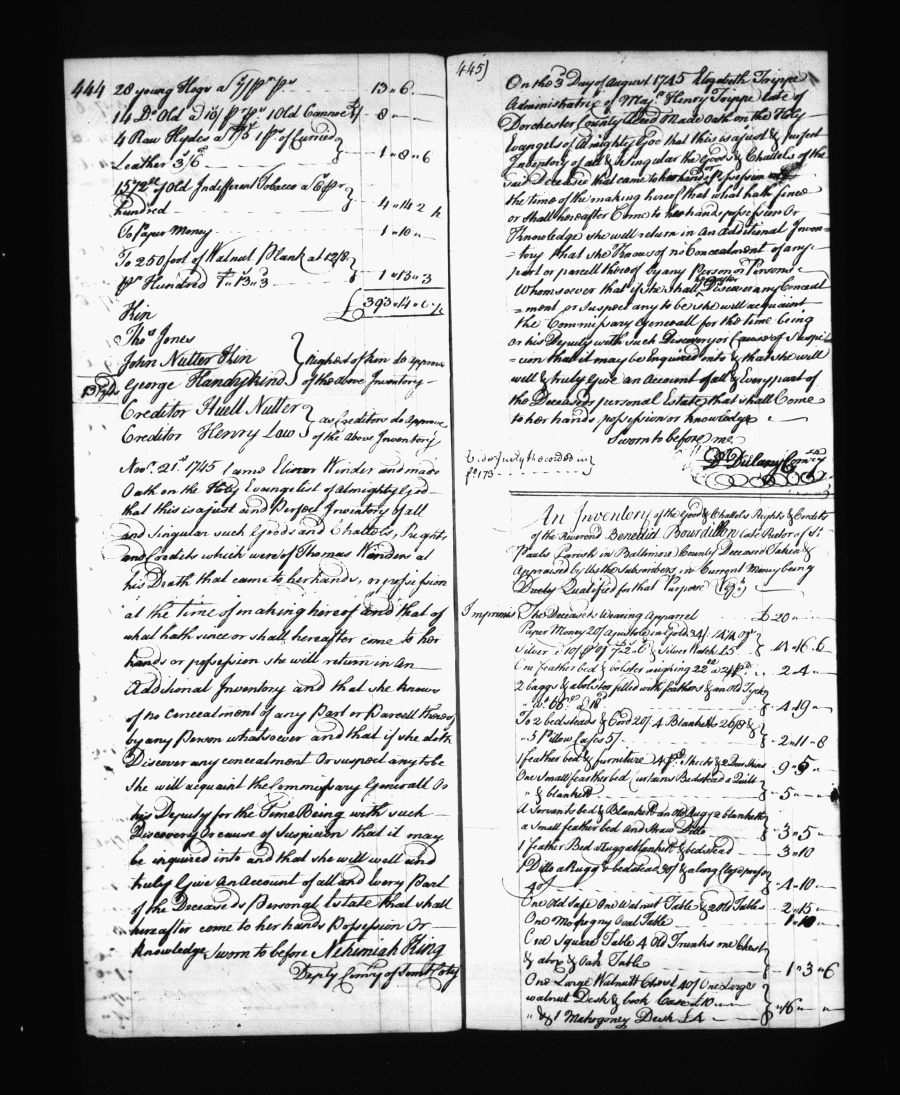 444
28 young Hogs a 5/ p r p s 13 " 6
14 Do Old a 10/ p r p s 1 Old Cannoe 20/ 8 "
4 Raw Hydes a 4/3 1 ps of Curried
Leather 3/6 1 " 8 " 6
1572 lb of Old Indifferent Tobacco a 6/ pr
hundred 4 " 14 2
To Paper Money 1 " 10 "
To 250 foot of Walnut Plank at 12/8
pr Hundred 1 " 13 " 3 1 " 13 " 3
£ 393 " 14 "
Kin
Thos Jones
John Nutter Kin
highest of kin do approve
George Handy Kind of the above Inventory
Creditor Huell Nutter
as Creditors do Approve
Creditor Henry Law of the Above Inventory
Novr. 21st 1745 Came Elizar Winder and made
Oath on the Holy Evangelist of Almighty God
that this is a just and Perfect Inventory of all
and Singular such Goods and Chattels, Rights,
and Credits which were of Thomas Winders at
his Death that came to her hands, or possession
at the time of making hereof and that of
what hath since or shall hereafter come to her
hands or possession she will return in an
Additional Inventory and that she knows
of no Concealment of any Part or Parcell thereof
by any Person whatsoever and that if she doth
Discover any concealment Or suspect any to be
She will acquaint the Commissary Generall Or
his Deputy for the Time Being with such
Discovery Or cause of Suspicion that it may
be inquired into and that she will well and
truly Give An Account of all and Every Part
of the Deceaseds Personal Estate that shall
hereafter come to her hands Possession Or
Knowledge Sworn to before Nehemiah King
Depty Comry of Somst Coty
445)
On the 3d Day of August 1745 Elizabeth Trippe
Administratrix of Majr. Henry Trippe late of
Dorchester County Decd Made Oath on the Holy
Evangels of Almighty God that this is a just & perfect
Inventory of all & singular the Goods & Chattels of the
said Deceased that came to her hands or possession at
the time of the making hereof that what hath since
or shall hereafter Come to her hands possession Or
Knowledge she will return in An additional Inven=
=tory that she Knows of no Concealment of any
part or parcell thereof by any Person or Persons
Whomsoever that if she shall hereafter Discover any Conceal
=ment or Suspect any to be she will acquaint
the Commissary Generall for the time being
or his Deputy with such Discovery or Cause of Suspic=
=ion that it may be Enquired into & that she will
well & truly Give an Account of all & Every part of
the Deceaseds personal Estate that shall Come
to her hands possession or knowledge
Sworn to before me
D Dullany Comry
fo 173
An Inventory of the Goods & Chattels Rights & Credits
of the Reverend Benedict Bourdillon late Rector of St
Pauls Parish in Baltimore County Deceased Taken &
Appraised by Us the Subscribers in Current Money being
Duely Qualified for that Purpose
Imprimis The Deceaseds Wearing Apparel £ 20 "
Paper Money 20/ a pistole in Gold 34/
Silver a 10/ Silver Watch £5 16 " 6
One feather bed & bolster weighing 22 lb 2 " 4 "
2 baggs & a bolster filled with feathers & an Old Tick
4 " 19 "
To 2 bedsteads & Cord 20/ 4 Blankets 26/8 &
3 Pillow Cases 5/ 2 " 11 " 8
1 feather bed & furniture Sheets & 2 9 " 5
One Small feather bed Curtains Bedstead a Quilt
& blankett 5 "
A Servants bed & Blankett an Old Rugg 2 blanketts
a small feather bed And Straw Ditto 3 " 5
1 feather Bed a Rugg a blankett & bedstead 3 " 10
1 Ditto a Rugg & bedstead 30/ & a long
40/ 4 " 10
One Old Safe One Walnut Table & 2 Old Tables 2 " 15
One Mahogny Oval Table 1 " 10
One Square Table 4 Old Trunks one Chest
& a box & Oak Table 1 " 3 " 6
One Large Walnutt Chest 40/ One Large
walnut Desk & book Case £10
" & 1 Mahogoney Desk £4 16 "